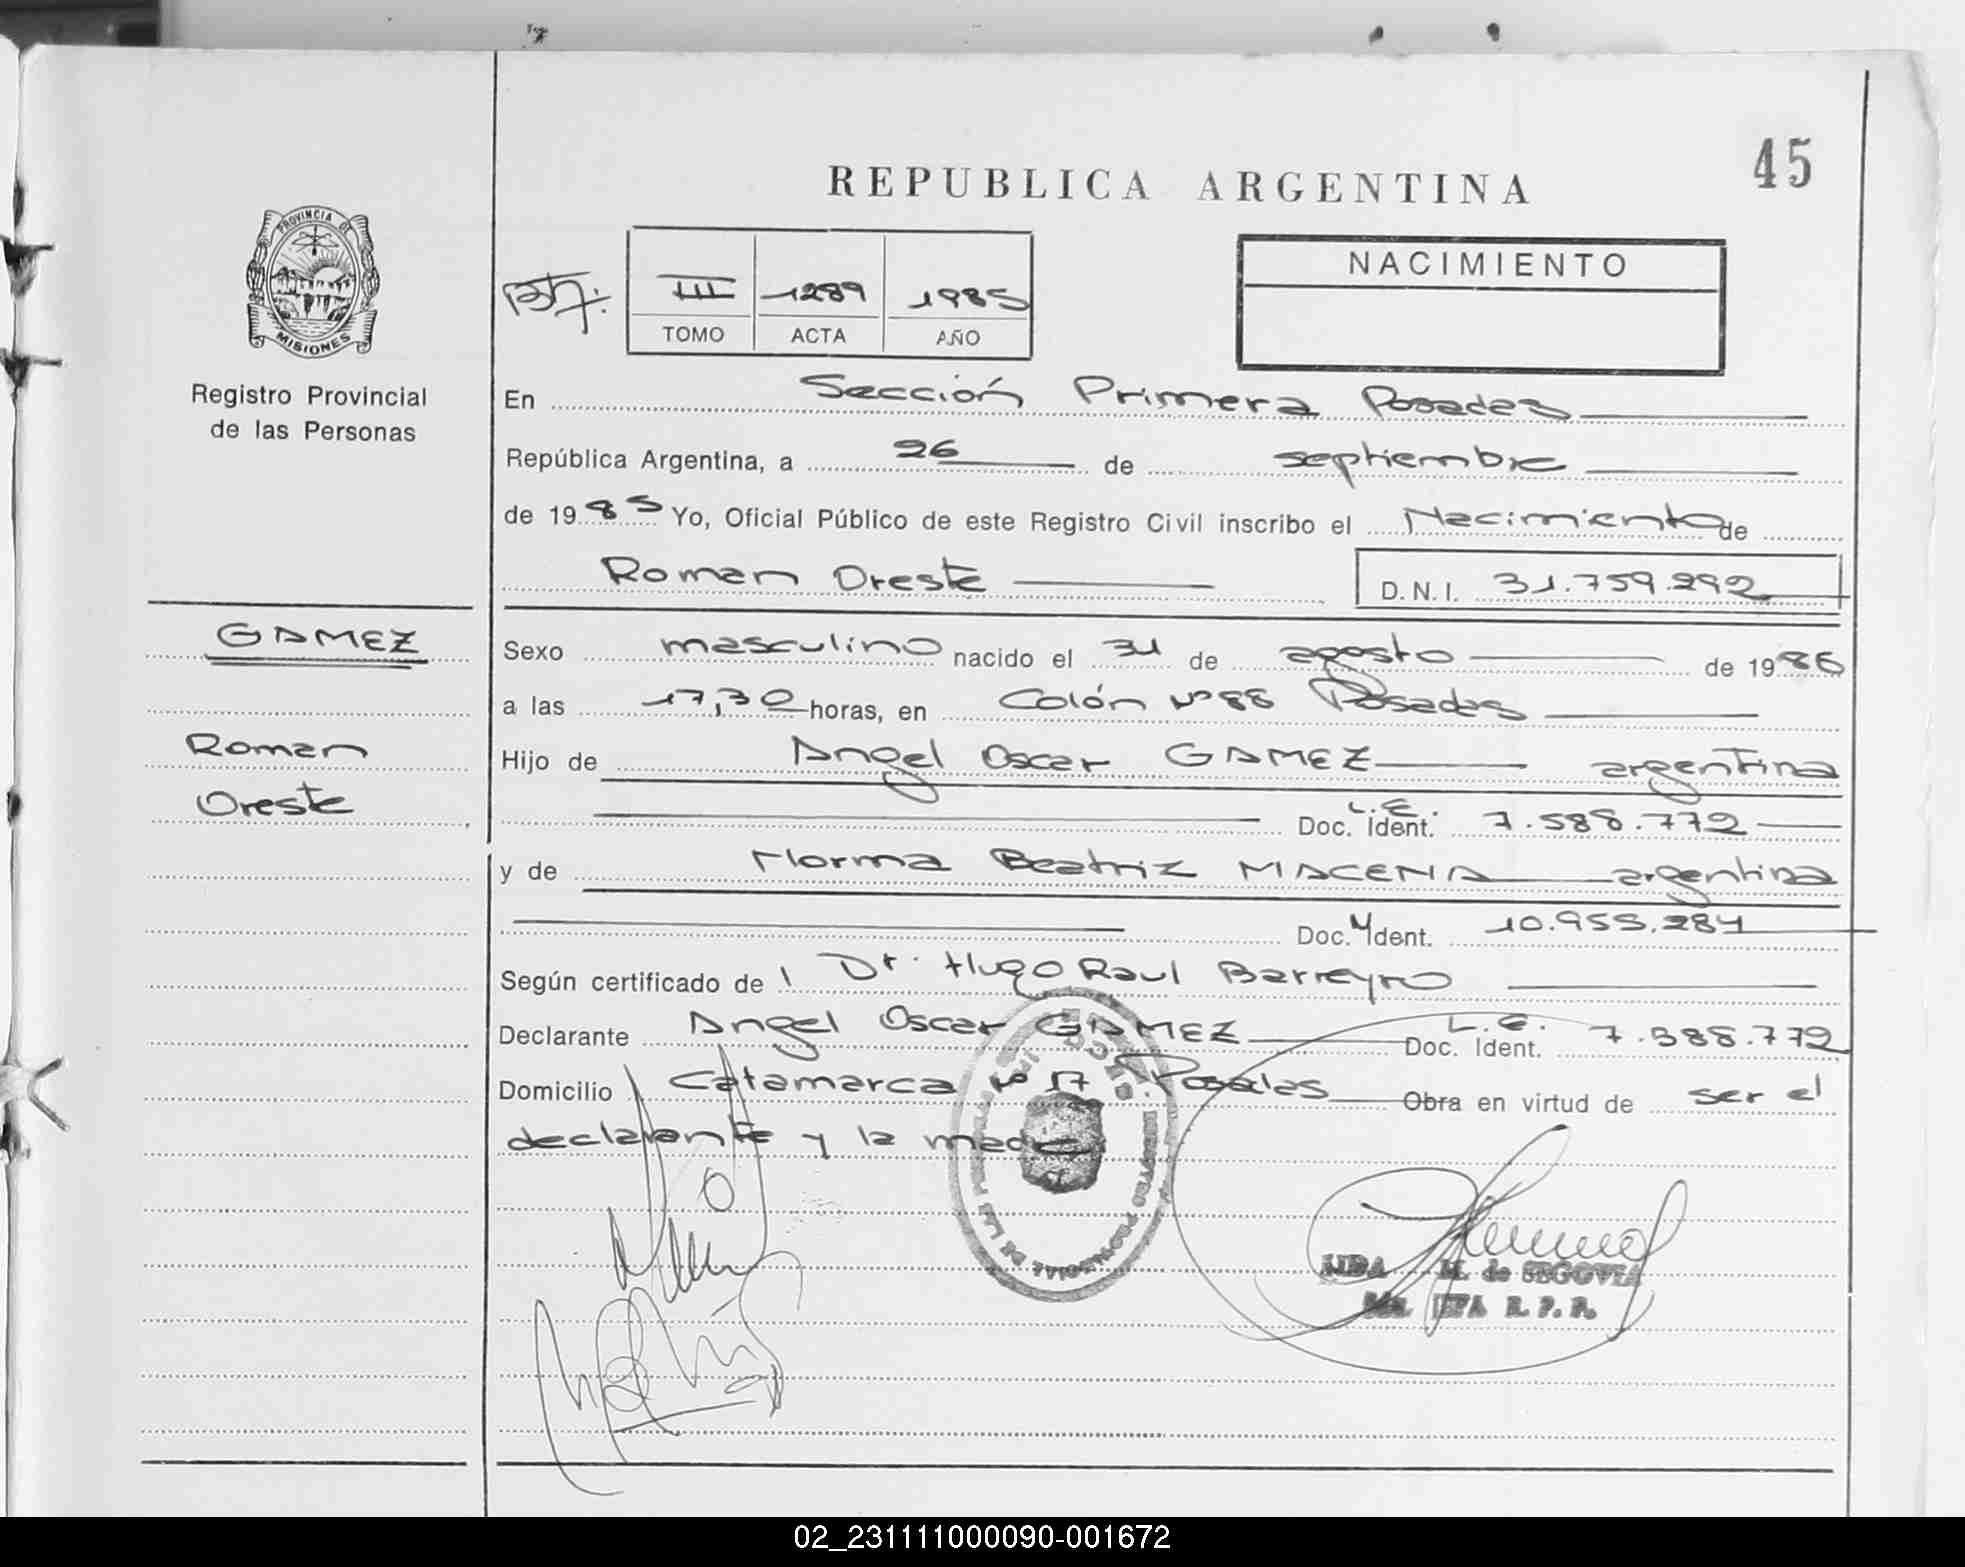 45
REPUBLICA ARGENTINA
PROVINCIA DE
MISIONES
Registro Provincial
de las Personas
III 1289 1985
TOMO ACTA AÑO
NACIMIENTO
En Sección Primera Posadas
República Argentina, a 26 de septiembre
de 1985 Yo, Oficial Público de este Registro Civil inscribo el Nacimiento de
Roman Oreste D.N.I. 31.759.292
GAMEZ
Roman
Oreste
Sexo masculino nacido el 31 de agosto de 1986
a las 17,30 horas, en Colón Nº 88 Posadas
Hijo de Angel Oscar GAMEZ argentina
L.E.
Doc. Ident. 7.588.772
y de Norma Beatriz MACENA argentina
Doc. Ident. 10.955.284
Según certificado de Dr. Hugo Raul Barreyro
Declarante Angel Oscar GAMEZ L.E. Doc. Ident. 7.388.772
Domicilio Catamarca Nº 17 Posadas Obra en virtud de ser el
declarante y la madre
M. de SEGOVIA
R. P. P.
02_231111000090-001672